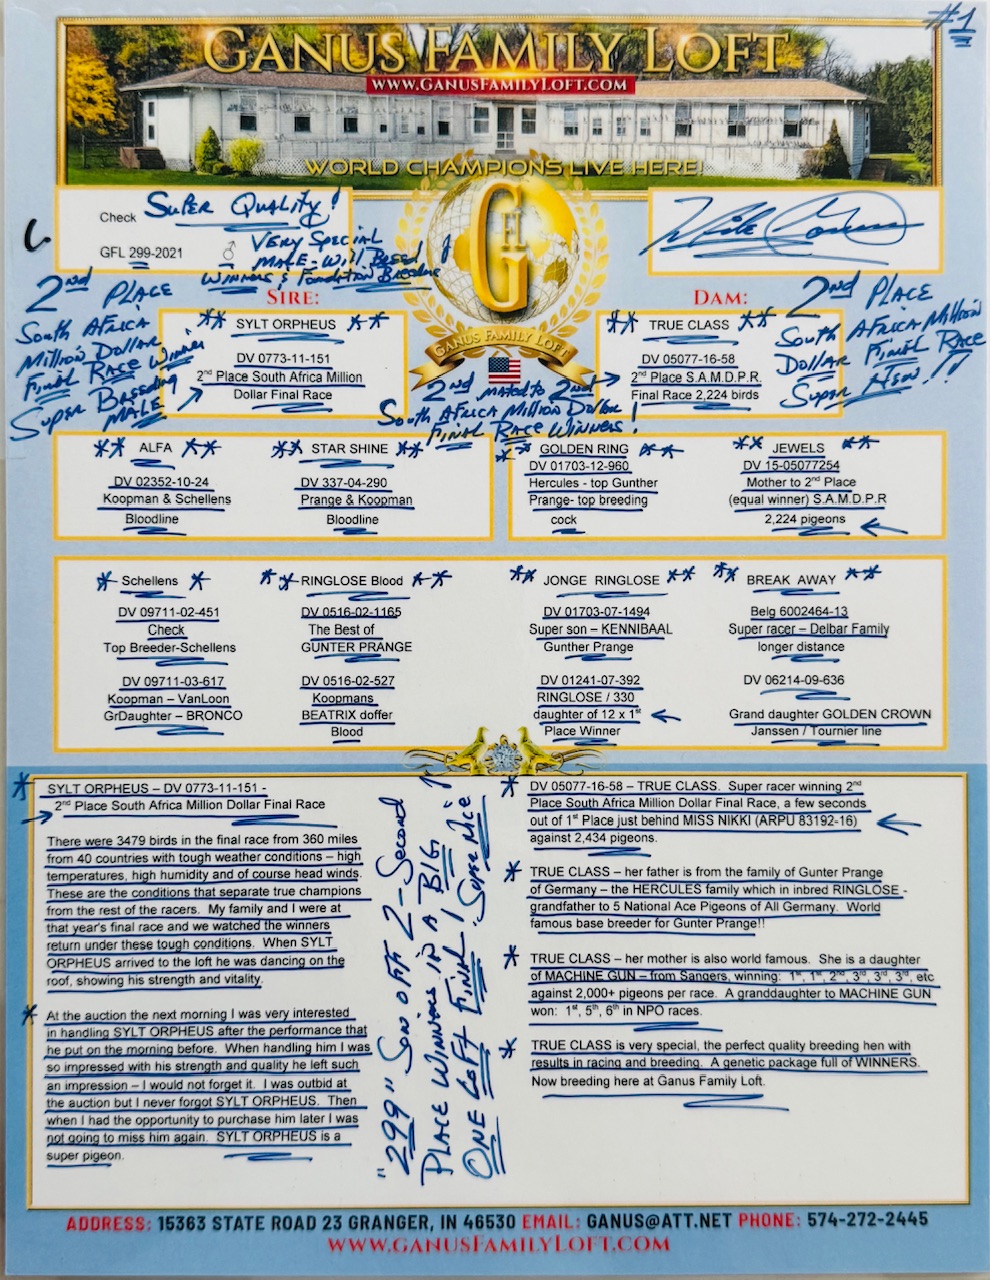 #1
GANUS FAMILY LOFT
WWW.GANUSFAMILYLOFT.COM
WORLD CHAMPIONS LIVE HERE!
Check SUPER QUALITY!
GFL 299-2021 ♂ VERY SPECIAL
MALE - WILL BREED
WINNERS & FOUNDATION BREEDING!
GFL
GANUS FAMILY LOFT
SIRE:
DAM:
2nd PLACE
SOUTH AFRICA
MILLION DOLLAR
FINAL RACE WINNER
SUPER BREEDING
MALE
** SYLT ORPHEUS **
DV 0773-11-151
2nd Place South Africa Million
Dollar Final Race
** TRUE CLASS **
DV 05077-16-58
2nd Place S.A.M.D.P.R.
Final Race 2,224 birds
2nd PLACE
SOUTH AFRICA MILLION
DOLLAR FINAL RACE
SUPER HEN!!
2nd MATED TO 2nd
SOUTH AFRICA MILLION DOLLAR
FINAL RACE WINNERS!
** ALFA **
DV 02352-10-24
Koopman & Schellens
Bloodline
** STAR SHINE **
DV 337-04-290
Prange & Koopman
Bloodline
** GOLDEN RING **
DV 01703-12-960
Hercules - top Gunther
Prange- top breeding
cock
** JEWELS **
DV 15-05077254
Mother to 2nd Place
(equal winner) S.A.M.D.P.R
2,224 pigeons
* Schellens *
DV 09711-02-451
Check
Top Breeder-Schellens
DV 09711-03-617
Koopman – VanLoon
GrDaughter – BRONCO
** RINGLOSE Blood **
DV 0516-02-1165
The Best of
GUNTER PRANGE
DV 0516-02-527
Koopmans
BEATRIX doffer
Blood
** JONGE RINGLOSE **
DV 01703-07-1494
Super son – KENNIBAAL
Gunther Prange
DV 01241-07-392
RINGLOSE / 330
daughter of 12 x 1st
Place Winner
** BREAK AWAY **
Belg 6002464-13
Super racer – Delbar Family
longer distance
DV 06214-09-636
Grand daughter GOLDEN CROWN
Janssen / Tournier line
* SYLT ORPHEUS – DV 0773-11-151 -
2nd Place South Africa Million Dollar Final Race
There were 3479 birds in the final race from 360 miles
from 40 countries with tough weather conditions – high
temperatures, high humidity and of course head winds.
These are the conditions that separate true champions
from the rest of the racers. My family and I were at
that year's final race and we watched the winners
return under these tough conditions. When SYLT
ORPHEUS arrived to the loft he was dancing on the
roof, showing his strength and vitality.
* At the auction the next morning I was very interested
in handling SYLT ORPHEUS after the performance that
he put on the morning before. When handling him I was
so impressed with his strength and quality he left such
an impression – I would not forget it. I was outbid at
the auction but I never forgot SYLT ORPHEUS. Then
when I had the opportunity to purchase him later I was
not going to miss him again. SYLT ORPHEUS is a
super pigeon.
"299" SON OFF 2-SECOND
PLACE WINNERS IN A BIG
ONE LOFT FINAL! SUPER NICE!!
* DV 05077-16-58 – TRUE CLASS. Super racer winning 2nd
Place South Africa Million Dollar Final Race, a few seconds
out of 1st Place just behind MISS NIKKI (ARPU 83192-16)
against 2,434 pigeons.
* TRUE CLASS – her father is from the family of Gunter Prange
of Germany – the HERCULES family which in inbred RINGLOSE -
grandfather to 5 National Ace Pigeons of All Germany. World
famous base breeder for Gunter Prange!!
* TRUE CLASS – her mother is also world famous. She is a daughter
of MACHINE GUN – from Sangers, winning: 1st, 1st, 2nd, 3rd, 3rd, 3rd, etc
against 2,000+ pigeons per race. A granddaughter to MACHINE GUN
won: 1st, 5th, 6th in NPO races.
* TRUE CLASS is very special, the perfect quality breeding hen with
results in racing and breeding. A genetic package full of WINNERS.
Now breeding here at Ganus Family Loft.
ADDRESS: 15363 STATE ROAD 23 GRANGER, IN 46530 EMAIL: GANUS@ATT.NET PHONE: 574-272-2445
WWW.GANUSFAMILYLOFT.COM